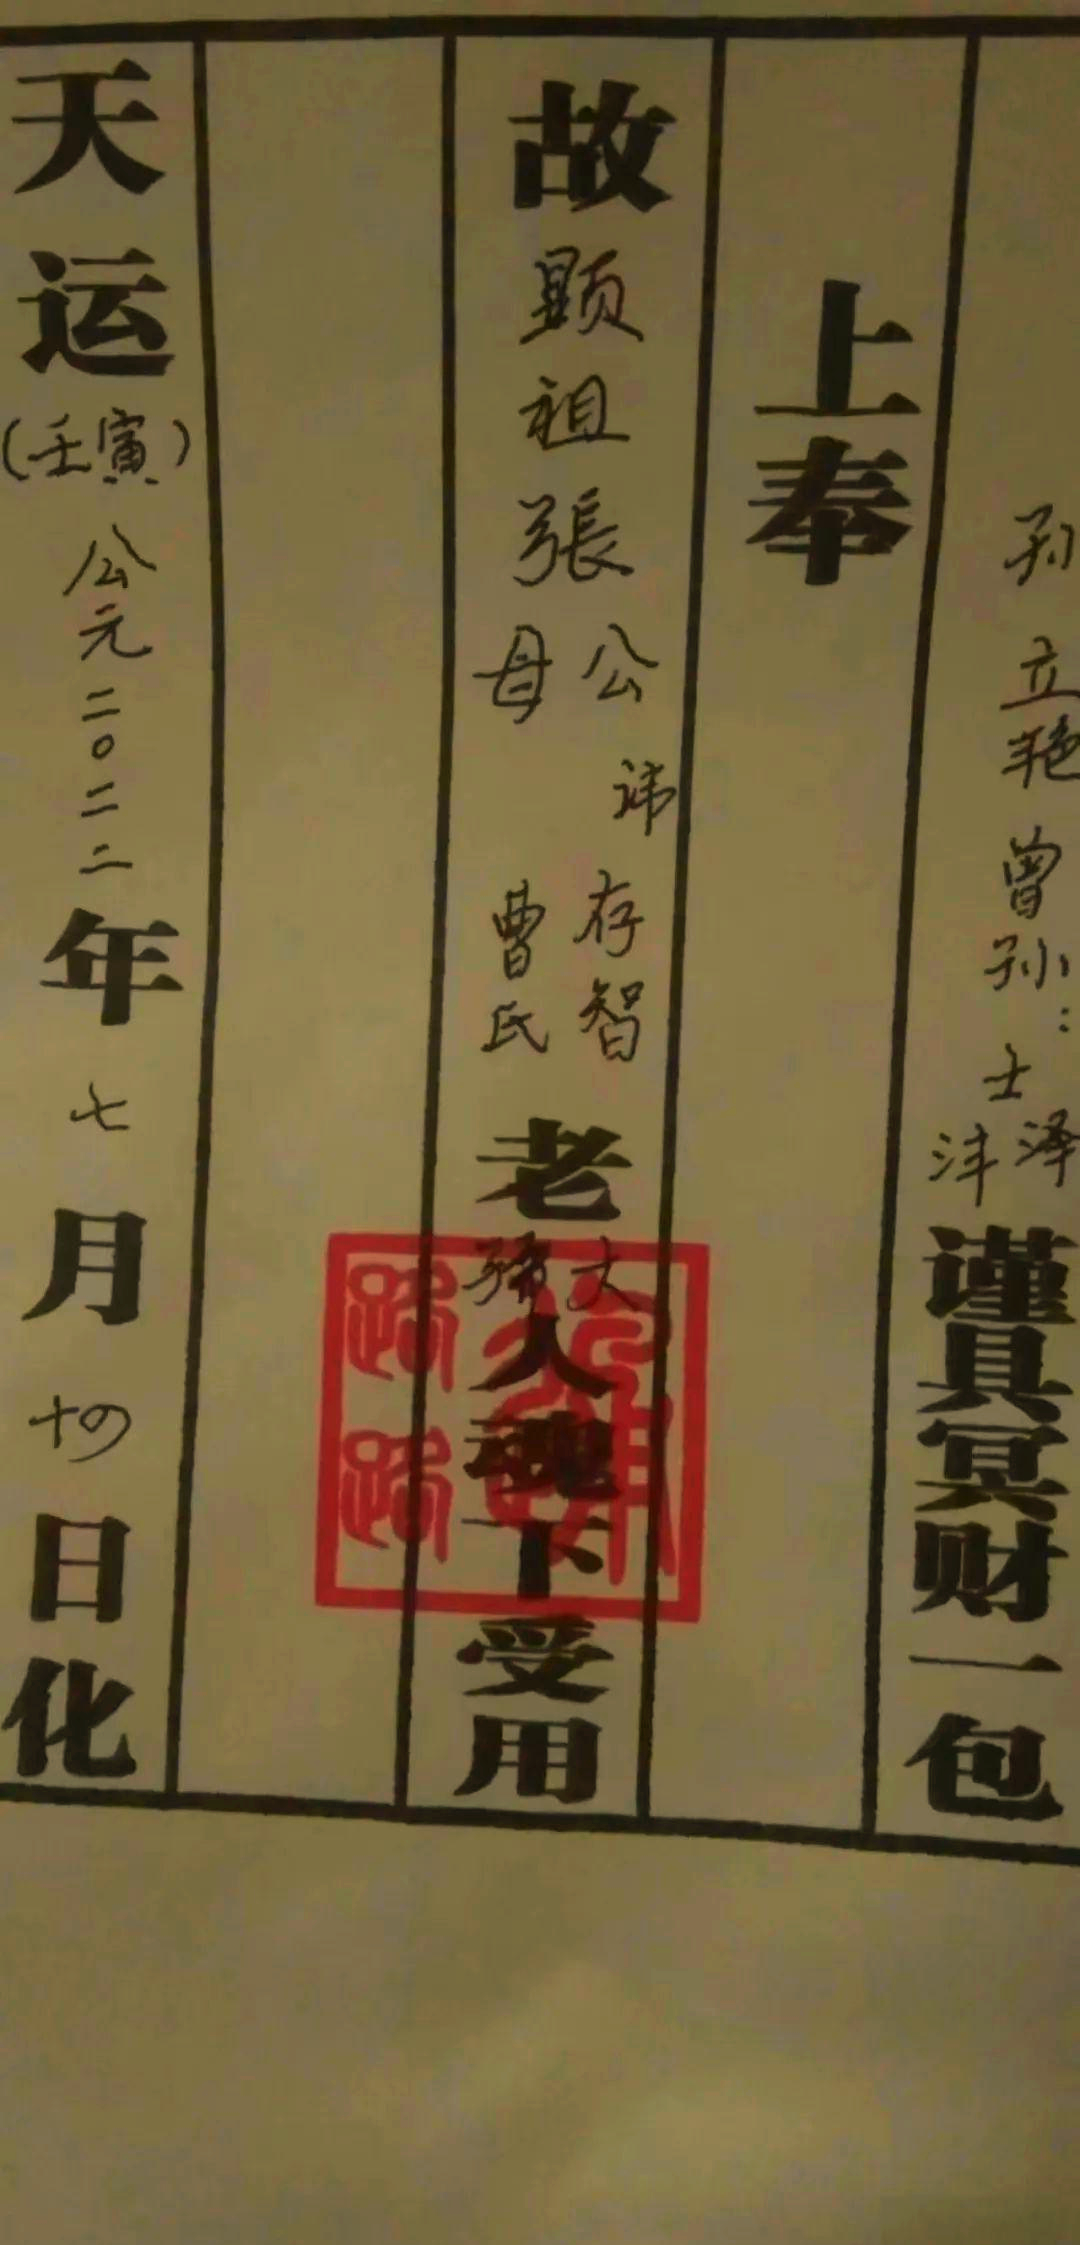 孙 立艳 曾孙：士泽沣 谨具冥财一包
上奉
故顕祖張公母 讳存智 曹氏 老大孺人魂下受用
天运（壬寅）公元二〇二二年七月十四日化